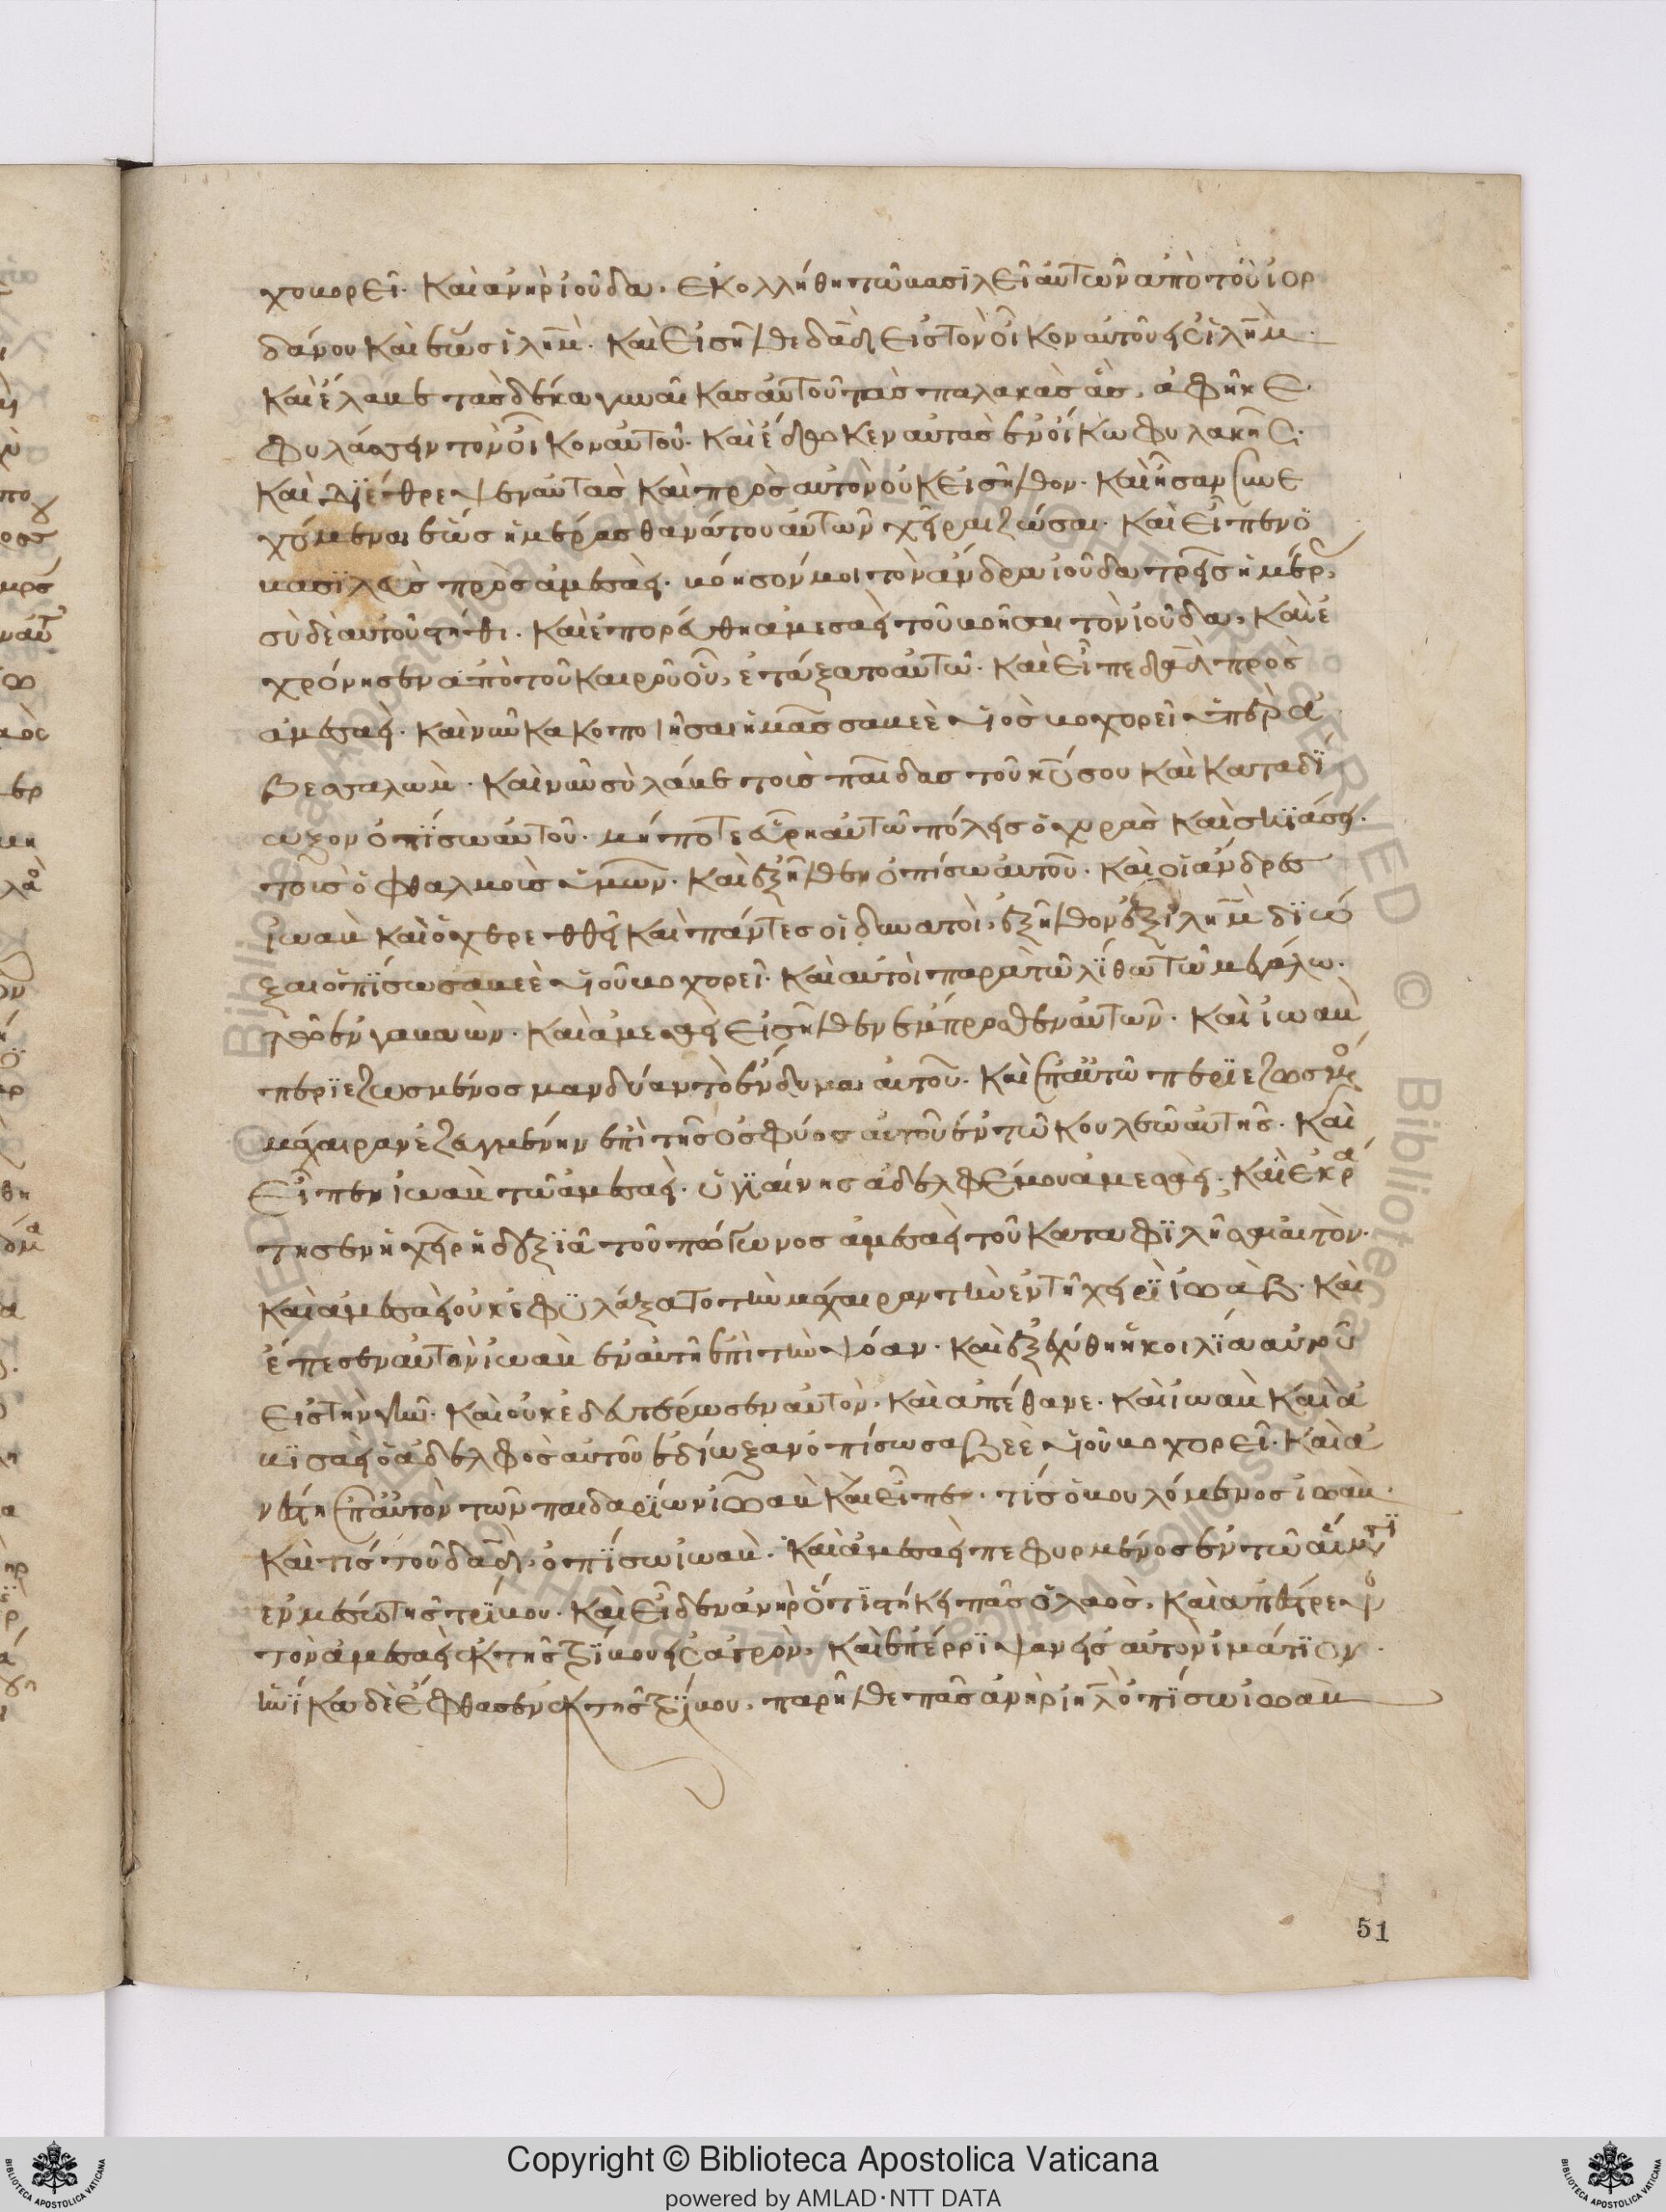 χοβορεῖ. Καὶ ἀνὴρ ἰούδα, ἐκολλήθη τῶ βασϊλεῖ αὐτῶν ἀπὸ τοῦ ἰορ
δάνου καὶ ἕως ἰλη̅μ. Καὶ εἰσῆλθε δα̅δ εἰς τὸν οἶκον αὐτοῦ εἰς ἰλη̅μ.
Καὶ ἔλαβε τὰς δέκα γυναῖκας αὐτοῦ τὰς παλακὰς ἃς, ἀφῆκε.
φυλάσσειν τὸν οἶκον αὐτοῦ. Καὶ ἔδωκεν αὐτὰς ἐν οἴκω φυλακῆς.
Καὶ διέθρεψεν αὐτὰς καὶ πρὸς αὐτὸν οὐκ εἰσῆλθον. Καὶ ἦσαν συνε
χόμεναι ἕως ἡμέρας θανάτου αὐτῶν χῆραι ζώσαι. Καὶ εἶπεν ὁ
βασϊλεὺς πρὸς ἀμεσαεὶ. βόησόν μοι τὸν ἄνδρα ἰούδα τρεῖς ἡμέρ,
σὺ δὲ αὐτοῦ στήθι. Καὶ ἐπορεύθη ἀμεσαεὶ τοῦ βοῆσαι τὸν ἰούδα, Καὶ ἐ
χρόνησεν ἀπὸ τοῦ καιροῦ οὗ, ἐτάξατο αὐτῶ. Καὶ εἶπε δα̅δ πρὸς
ἀμεσαεὶ. Καὶ νῦν κακοποιῆσαι ἡμᾶς σαβεὲ υἱὸς βοχορεῖ ὑπὲρ ἀ
βεσσαλὼμ. Καὶ νῦν σὺ λάβε τοὺς παῖδας τοῦ κυ̅ σου καὶ καταδϊ
ωξον ὀπϊσω αὐτοῦ. μήποτε εὕρη αὐτῶ πόλεις ὀχυρὰς καὶ σκϊάσει.
τοὺς ὀφθαλμοὺς ἡμῶν. Καὶ ἐξῆλθεν ὀπίσω αὐτοῦ. Καὶ οἱ ἄνδρες
ἰωαβ καὶ ὁ χερεθθεὶ καὶ πάντες οἱ δυνατοὶ, ἐξῆλθον ἐξ ἰλη̅μ δϊώ
ξαι ὀπϊσω σαβεὲ υἱοῦ βοχορεῖ. Καὶ αὐτοὶ παρὰ τῶ λϊθω τῶ μεγάλω.
τῶ ἐν γαβαὼν. Καὶ ἀμεσσαεὶ εἰσῆλθεν ἔμπροσθεν αὐτῶν. Καὶ ἰωαβ
περϊεζωσμένος μανδύαν τὸ ἔνδυμα αὐτοῦ. Καὶ ἐπ αὐτῶ περϊεζωσμο
μάχαιραν ἐζευγμένην ἐπὶ τῆς ὀσφύος αὐτοῦ ἐν τῶ κουλεῶ αὐτῆς. Καὶ
εἶπεν ἰωαβ τῶ ἀμεσαεὶ. ὑγϊαίνης ἀδελφέ μου ἀμεσσαεὶ. Καὶ ἐκρά
τησεν ἡ χεὶρ ἡ δεξϊὰ τοῦ πώγωνος ἀμεσαεὶ τοῦ καταφϊλῆσαι αὐτὸν.
Καὶ ἀμεσαεὶ οὐκ ἐφϋλάξατο τὴν μάχαιραν τὴν ἐν τῆ χειρϊ ἰωὰβ. Καὶ
ἔπεσεν αὐτὸν ἰωαβ ἐν αὐτῆ ἐπὶ τὴν ψόαν. Καὶ ἐξεχύθη ἡ κοιλϊα αὐτοῦ
εἰς τὴν γῆν. Καὶ οὐκ ἐδευτέρωσεν αὐτὸν, Καὶ ἀπέθανε. Καὶ ἰωαβ καὶ ἀ
βϊσαεὶ ὁ ἀδελφὸς αὐτοῦ ἐδίωξαν ὀπίσω σαβεὲ υἱοῦ βοχορεῖ. Καὶ ἀ
νέστη ἐπ αὐτὸν τῶν παιδαρϊων ἰωαβ καὶ εἶπεν. τίς ὁ βουλόμενος ἰωαβ.
Καὶ τίς τοῦ δα̅δ, ὀπϊσω ἰωαβ. Καὶ ἀμεσαεὶ πεφυρμένος ἐν τῶ αἵματϊ
ἐν μέσω τῆς τρϊβου. Καὶ εἶδεν ἀνὴρ ὅτϊ εἱστήκει πᾶς ὁ λαὸς, Καὶ ἀπέστρεψε
τὸν ἀμεσαεὶ ἐκ τῆς τρϊβου εἰς ἀγρὸν, Καὶ ἐπέρρϊψαν εἰς αὐτὸν ἱμάτϊον.
ἡνϊκα δὲ ἔφθασεν ἐκ τῆς τρϊβου, παρῆλθε πᾶς ἀνὴρ ιη̅λ ὀπϊσω ἰωαβ
51
Copyright © Biblioteca Apostolica Vaticana
powered by AMLAD·NTT DATA